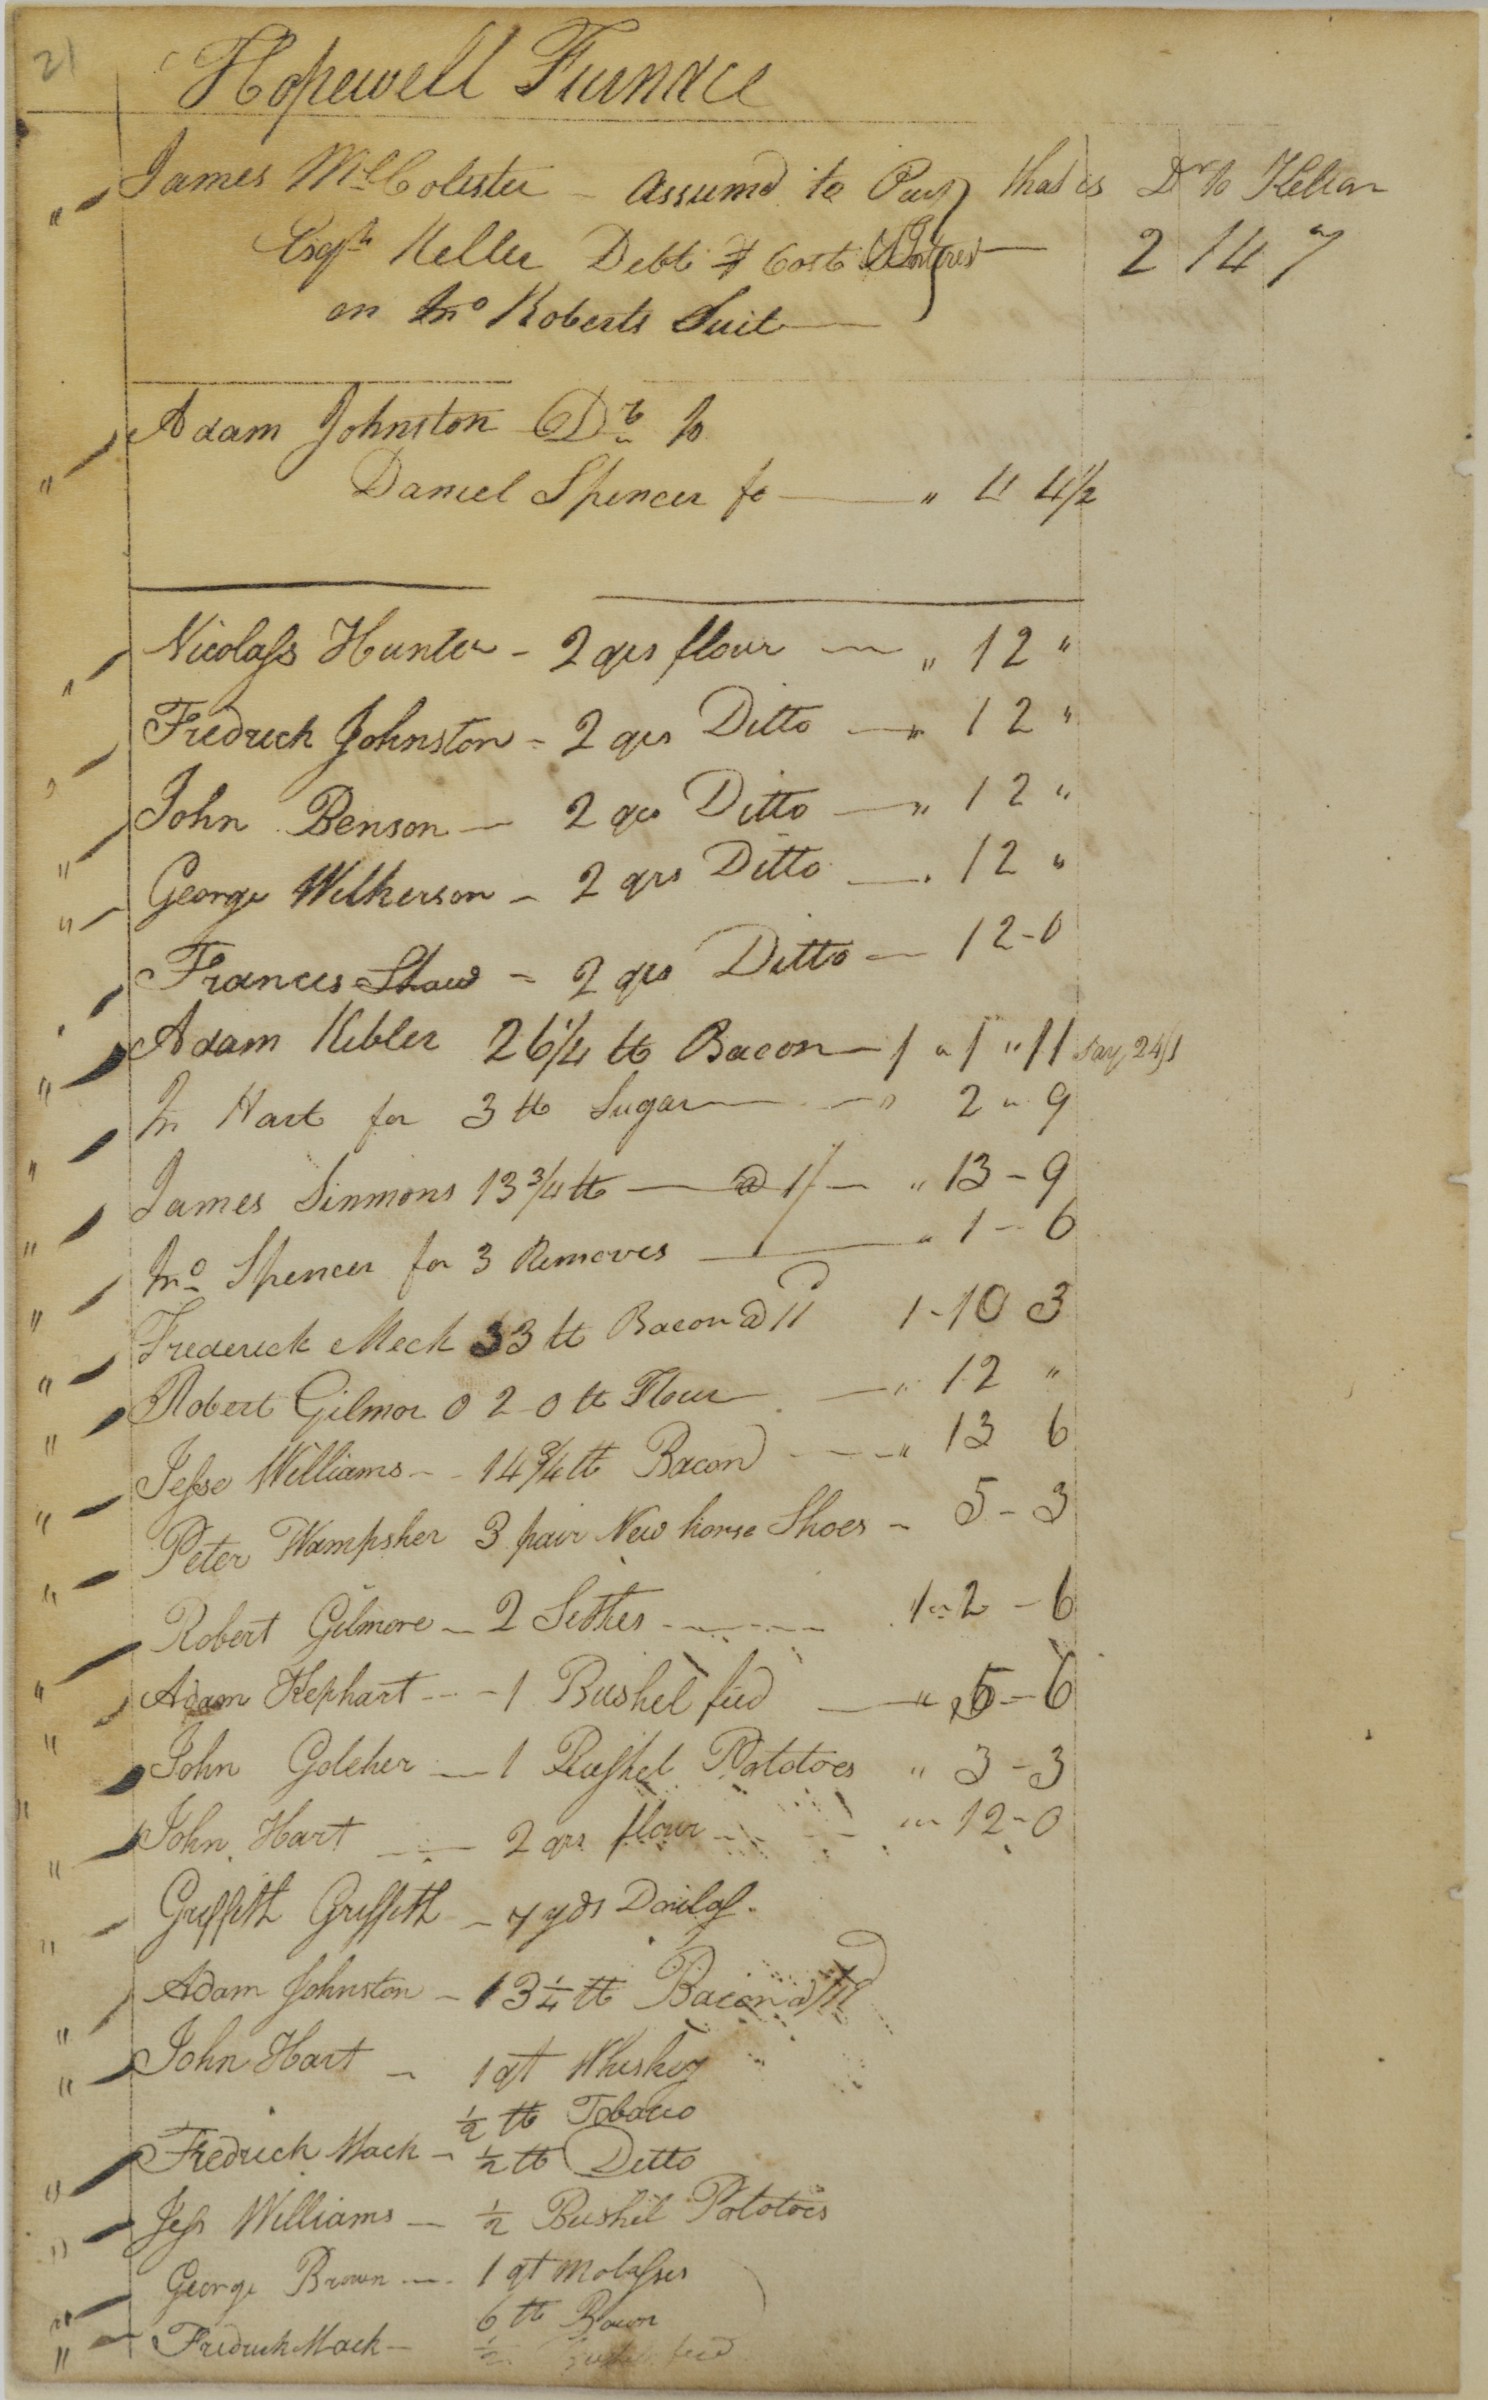 21
Hopewell Furnace
James McColister - Assumd to Pay that is Dr to Kelian
Esqr Keller Debt & Cost & Interest — 2 14 7
on Jno Roberts Suit —
Adam Johnston Dr to
Daniel Spencer fo — " 4 4½
Nicolass Hunter - 2 qrs flour — " 12 "
Fredrick Johnston - 2 qrs Ditto — " 12 "
John Benson — 2 qrs Ditto — " 12 "
George Wilkerson - 2 qrs Ditto — . 12 "
Frances Shaw - 2 qrs Ditto — 12-0
Adam Kibler 26¼ lb Bacon — 1 " 1 " 11 say 24/1
Jn Hart for 3 lb Sugar — " 2 " 9
James Sinmons 13¾ lb — @ 1/ — " 13 - 9
Jno Spencer for 3 Removes — " 1 - 6
Frederick Meck 33 lb Bacon @ 11d 1-10 3
Robert Gilmor 0 2-0 lb Flour — " 12 "
Jesse Williams - - 14¾ lb Bacon — " 13 6
Peter Wampsher 3 pair New horse Shoes - 5-3
Robert Gilmore - 2 Sithes - 1-2-6
Adam Kephart - - 1 Bushel feed — " 5-6
John Golcher — 1 Bushel Pototoes " 3-3
John Hart — 2 qrs flour — " 12-0
Griffith Griffith - 7 yds Dowlas.
Adam Johnston - 13¼ lb Bacon @ 11d
John Hart - 1 qt Whiskey
½ lb Tobacco
Fredrick Mack - ½ lb Ditto
Jess Williams — ½ Bushil Pototoes
George Brown — 1 qt molasses
6 lb Bacon
Fredrick Mack - ½ Bushel feed